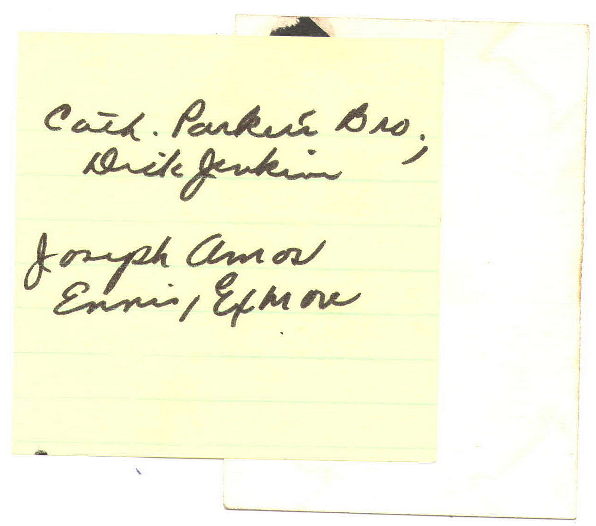 Cath. Parker's Bro.,
Dick Jenkins
Joseph Amos
Ennis, Exmore